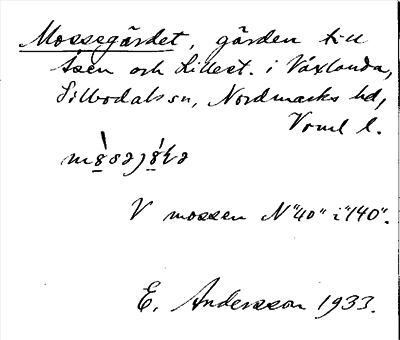 Mossegärdet, gärden till
Åsen och Lillest. i Växlanda,
Silbodals sn, Nordmarks hd,
Verml l.
V mossen N "40" i "140".
E. Andersson 1933.